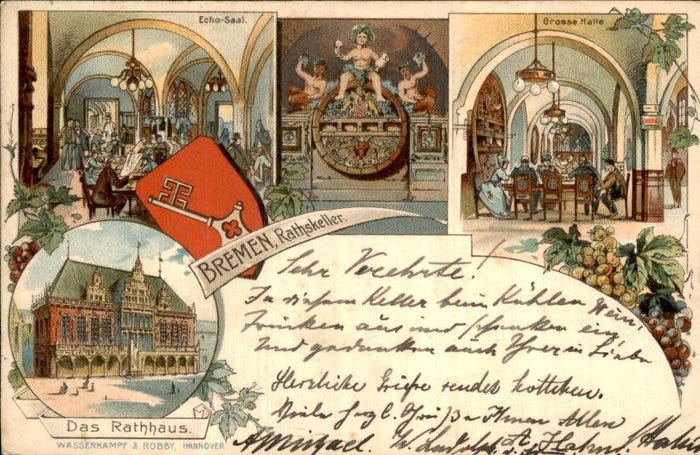 Echo-Saal.
Grosse Halle
BREMEN, Rathskeller.
Sehr Verehrte!
In diesem Keller beim Kühlen Wein
Trinken aus und schenken ein
Und gedenken auch Ihrer in Liebe
Herzliche Grüße sendet
herzl. Grüße Ihnen Allen
Das Rathhaus.
WASSERKAMPF & ROBBY, HANNOVER